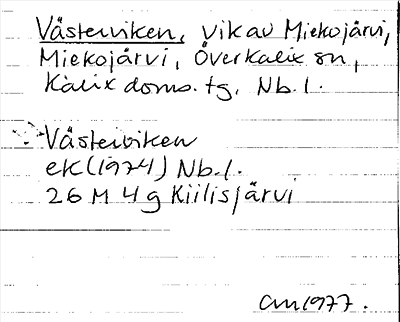 Västerviken, vik av Miekojärvi,
Miekojärvi, Överkalix sn,
Kalix doms. tg, Nb.l.
Västerviken
ek (1974) Nb.l.
26 M 4 g Kiilisjärvi
1977.